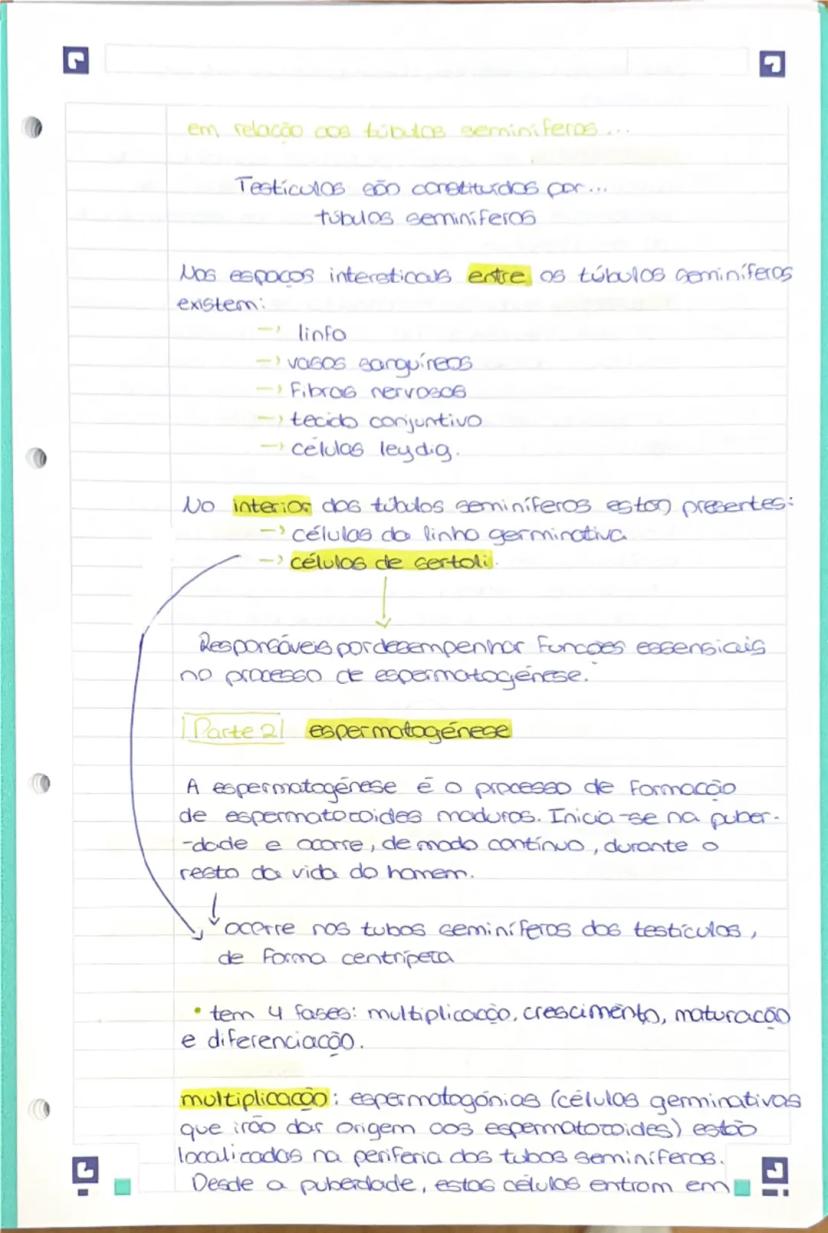 em relação aos túbulos seminíferos...
Testículos são constituídos por...
túbulos seminíferos
Nos espaços intersticais entre os túbulos seminíferos
existem:
→ linfa
→ vasos sanguíneos
→ fibras nervosas
→ tecido conjuntivo
→ células leydig.
No interior dos túbulos seminíferos estão presentes:
→ células da linha germinativa
→ células de sertoli.
Responsáveis por desempenhar funções essensiais
no processo de espermatogénese.
Parte 2 espermatogénese
A espermatogénese é o processo de formação
de espermatozoides maduros. Inicia-se na puber-
-dade e ocorre, de modo contínuo, durante o
resto da vida do homem.
ocorre nos tubos seminíferos dos testículos,
de forma centrípeta
• tem 4 fases: multiplicação, crescimento, maturação
e diferenciação.
multiplicação: espermatogónias (células germinativas
que irão dar origem aos espermatozoides) estão
localizadas na periferia dos tubos seminíferos.
Desde a puberdade, estas células entram em